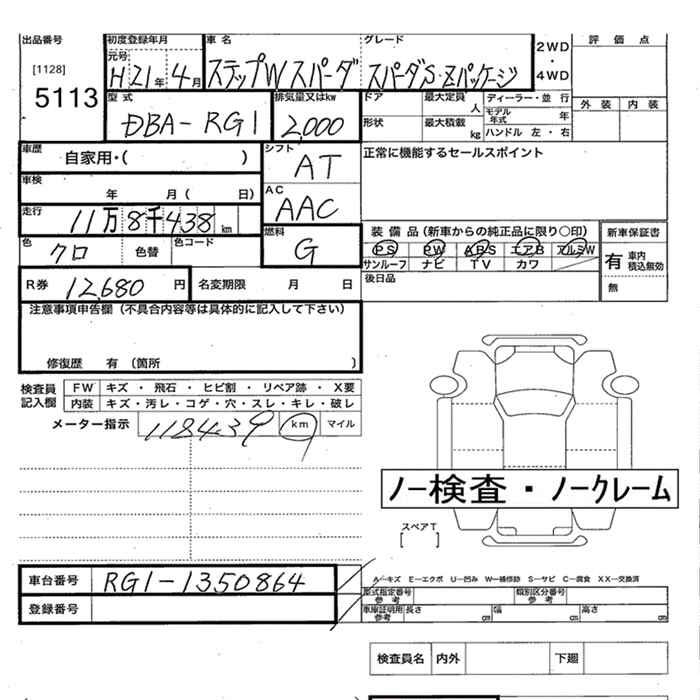 出品番号 初度登録年月 車名 グレード 2WD・4WD 評価点
[1128] 元号
5113 H21年4月 ステップWスパーダ スパーダS・Zパッケージ
型式 排気量又はkw ドア 最大定員 人 ディーラー・並行 外装 内装
DBA-RG1 2,000 形状 最大積載 kg モデル年式 年
ハンドル 左・右
車歴 自家用・( ) シフト AT 正常に機能するセールスポイント
車検 年 月( 日) AC AAC
走行 11万8千438km 燃料 G 装備品(新車からの純正品に限り○印) 新車保証書
色 クロ 色替 色コード PS PW ABS エアB アルミW 有 車内積込無効
サンルーフ ナビ TV カワ 無
R券 12,680円 名変期限 月 日 後日品
注意事項申告欄(不具合内容等は具体的に記入して下さい)
修復歴 有(箇所 )
検査員記入欄 FW キズ・飛石・ヒビ割・リペア跡・X要
内装 キズ・汚レ・コゲ・穴・スレ・キレ・破レ
メーター指示 118439 km マイル
ノー検査・ノークレーム
スペアT
[ ]
車台番号 RG1-1350864 A―キズ E―エクボ U―凹み W―補修跡 S―サビ C―腐食 XX―交換済
型式指定番号 参考 類別区分番号 参考
登録番号 車庫証明用 参考 長さ cm 幅 cm 高さ cm
検査員名 内外 下廻